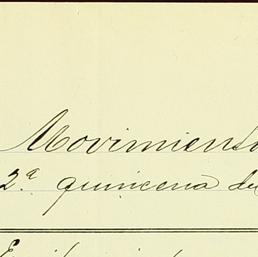 Movimiento
2.ª quincena de